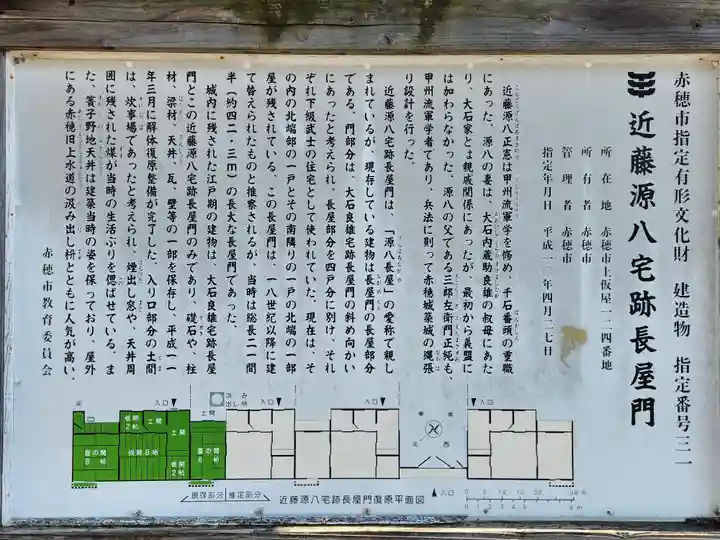 赤穂市指定有形文化財　建造物　指定番号三一
近藤源八宅跡長屋門
所在地　赤穂市上仮屋一二四番地
所有者　赤穂市
管理者　赤穂市
指定年月日　平成一〇年四月二七日
近藤源八正憲は甲州流軍学を修め、千石番頭の重職
にあった。源八の妻は、大石内蔵助良雄の叔母にあた
り、大石家とは親戚関係にあったが、最初から義盟に
は加わらなかった。源八の父である三郎左衛門正純も、
甲州流軍学者であり、兵法に則って赤穂城築城の縄張
り設計を行った。
近藤源八宅跡長屋門は、「源八長屋」の愛称で親し
まれているが、現存している建物は長屋門の長屋部分
である。門部分は、大石良雄宅跡長屋門の斜め向かい
にあったと考えられ、長屋部分を四戸分に別け、それ
ぞれ下級武士の住宅として使われていた。現在は、そ
の内の北端部の一戸とその南隣りの一戸の北端の一部
屋が残されている。この長屋門は、一八世紀以降に建
て替えられたものと推察されるが、当時は総長二一間
半（約四二・三m）の長大な長屋門であった。
城内に残された江戸期の建物は、大石良雄宅跡長屋
門とこの近藤源八宅跡長屋門のみであり、礎石や、柱
材、梁材、天井、瓦、壁等の一部を保存し、平成一一
年三月に解体復原整備が完了した。入り口部分の土間
は、炊事場であったと考えられ、煙出し窓や、天井周
囲に残された煤が当時の生活ぶりを偲ばせている。ま
た、簀子野地天井は建築当時の姿を保っており、屋外
にある赤穂旧上水道の汲み出し枡とともに人気が高い。
赤穂市教育委員会
入口
土間
汲み
出し枡
入口
入口
板間
2帖
土間
土間
畳の間
8帖
板間8帖
板間
2帖
畳の間
6帖
東
南
北
西
現存部分
推定部分
近藤源八宅跡長屋門復原平面図
入口
0 5 10 15 20 25 30尺
0 1 2 3 4 5 6 7 8 9m